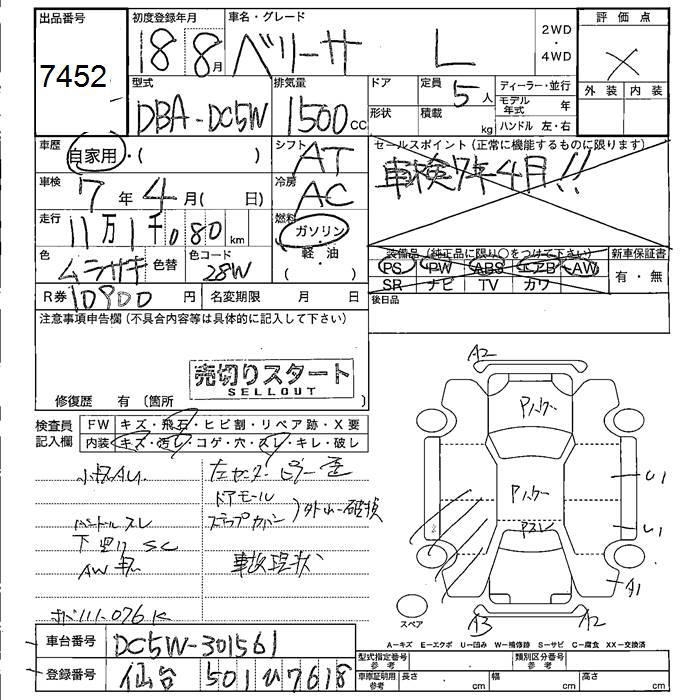 出品番号
7452
初度登録年月
18 8月
車名・グレード
ベリーサ L
2WD
・
4WD
評価点
X
外装 内装
型式
DBA-DC5W
排気量
1500cc
ドア
形状
定員
5人
積載
kg
ディーラー・並行
モデル年式 年
ハンドル 左・右
車歴
自家用・( )
シフト
AT
セールスポイント (正常に機能するものに限ります)
車検7年4月!!
車検
7年 4月( 日)
冷房
AC
走行
11万1千080km
燃料
ガソリン
軽・油
( )
色
ムラサキ
色替
色コード
28W
装備品 (純正品に限り○をつけて下さい)
PS PW ABS エアB AW
SR ナビ TV カワ
新車保証書
有・無
R券 10900円
名変期限 月 日
後日品
注意事項申告欄 (不具合内容等は具体的に記入して下さい)
売切りスタート
SELLOUT
修復歴 有 (箇所 )
検査員
記入欄
FW キズ・飛石・ヒビ割・リペア跡・X要
内装 キズ・汚レ・コゲ・穴・スレ・キレ・破レ
ドアモール
下廻り SC
AW
事故現状
A2
U1
U1
A1
A3
A2
スペア
A-キズ E-エクボ U-凹み W-補修跡 S-サビ C-腐食 XX-交換済
車台番号 DC5W-301561
登録番号 仙台 501 ひ 7618
型式指定番号
参考
類別区分番号
参考
車庫証明用
参考
長さ cm 幅 cm 高さ cm